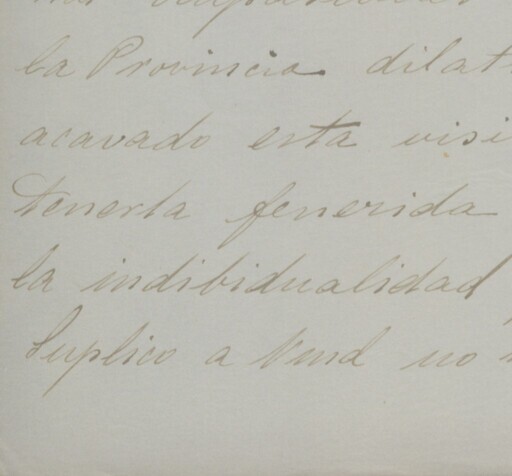 la Provincia dilat
acavado esta visi
tenerla fenerida
la indibidualidad
Suplico a Vmd no